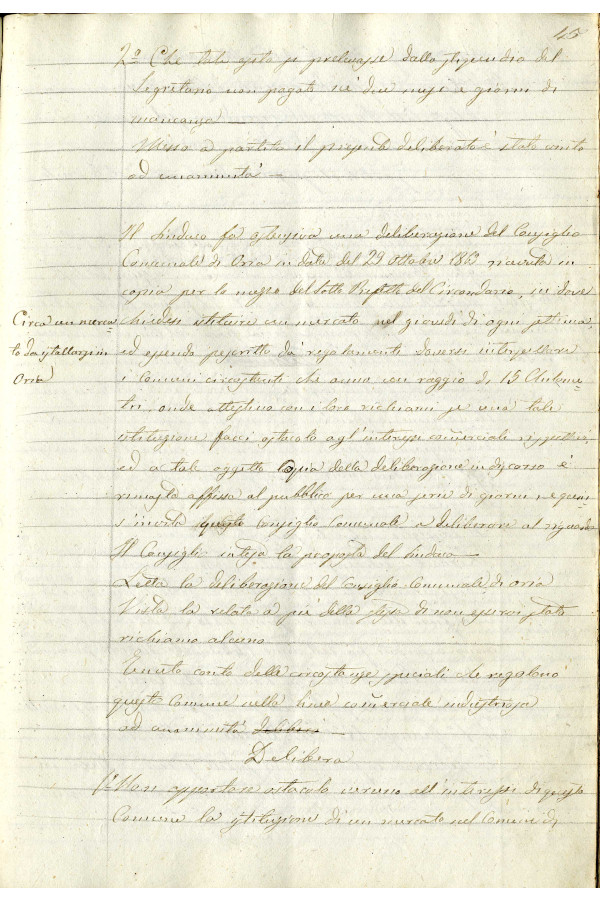 45
2º Che tale esito si prelevasse dallo stipendio del
Segretario non pagato ne' due mesi e giorni di
mancanza —
Messo a partito il presente deliberato è stato vinto
ad unanimità —
Il Sindaco fa ostensiva una deliberazione del Consiglio
Comunale di Oria in data del 29 Ottobre 1863 ricevuta in
copia per lo mezzo del Sotto Prefetto del Circondario, in dove
chiedesi istituire un mercato nel giovedì di ogni settimana,
Circa un merca=
to da istallarsi in
Oria
ed essendo prescritto da' regolamenti doversi interpellare
i Comuni circostanti che anno un raggio di 15 Chilome=
tri, onde attestino con i loro richiami se una tale
istituzione facci ostacolo agl'interessi commerciali rispettivi,
ed a tale oggetto Copia della deliberazione in discorso è
rimasta affissa al pubblico per una serie di giorni, e quin=
s'invita questo Consiglio Comunale a deliberare al riguardo
Il Consiglio intesa la proposta del Sindaco —
Letta la deliberazione del Consiglio Comunale di Oria
Vista la relata a piè della stessa di non esservi stato
richiamo alcuno
Tenuto conto delle circostanze speciali che regolano
questo Comune nella linea commerciale industriosa
ad unanimità
Delibera
1º Non apportare ostacolo veruno all'interessi di questo
Comune la istituzione di un mercato nel Comune di